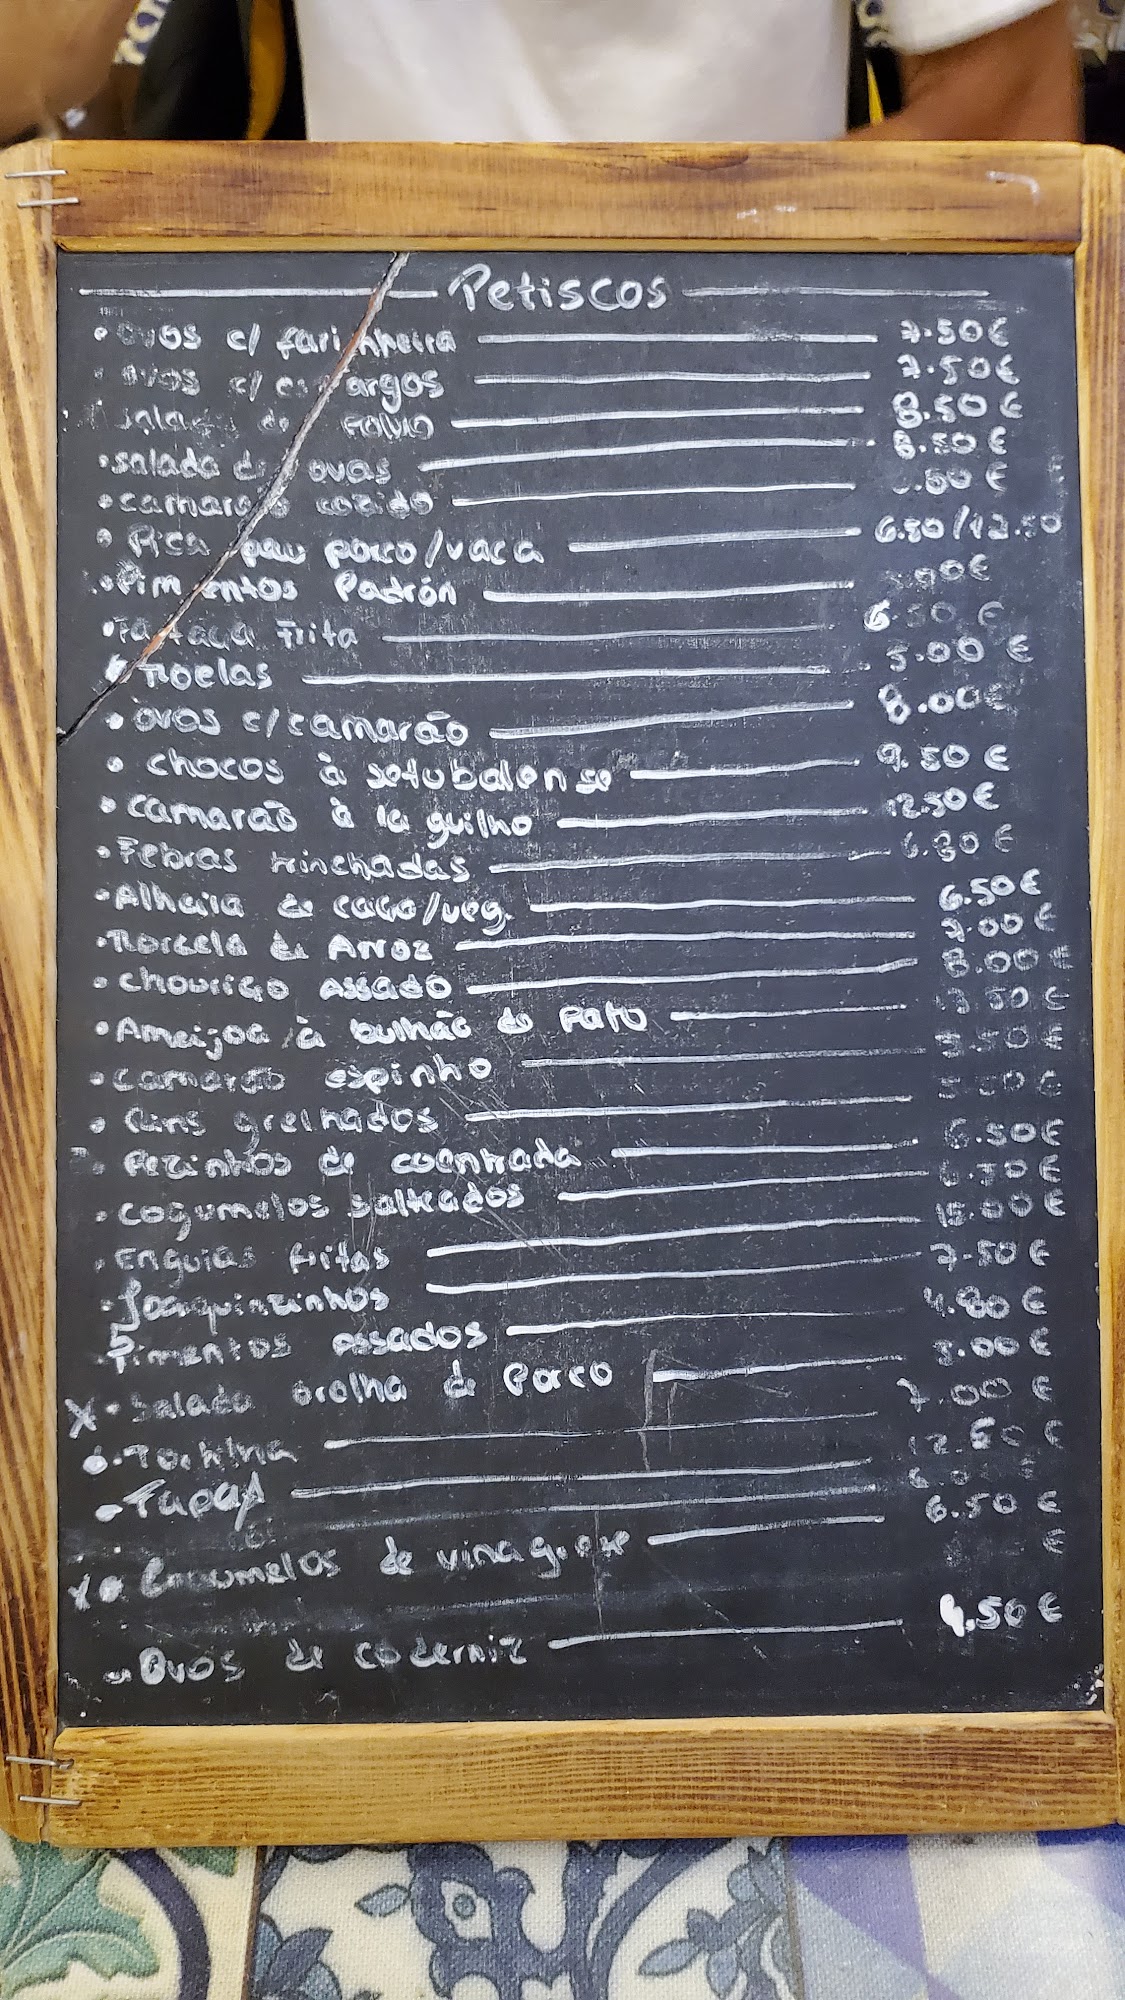 Petiscos
• ovos c/ farinheira 7.50€
ovos c/ espargos 7.50€
salada de polvo 8.50€
• salada de ovas 8.50€
• camarão cozido .50€
• Pica pau porco/vaca 6.50/12.50
• Pimentos Padrón .90€
• Frita 6.50€
• moelas 5.00€
• ovos c/camarão 8.00€
• chocos à setubalense 9.50€
• camarão à la guilho 12.50€
• Febras trinchadas 6.30€
• Alheira de caça/veg. 6.50€
• Morcela de Arroz 7.00€
• chouriço Assado 8.00€
• Ameijoa à bulhão de Pato 13.50€
• camarão espinho .50€
• Rins grelhados
Pezinhos de coentrada 6.50€
• cogumelos salteados 6.50€
• Enguias fritas 15.00€
• Joaquinzinhos 7.50€
Pimentos assados 4.80€
X • Salada orelha de Porco 5.00€
• Torkina 7.00€
• Tapas 12.50€
X • Cogumelos de vinagrete 6.50€
Ovos de coderniz 4.50€